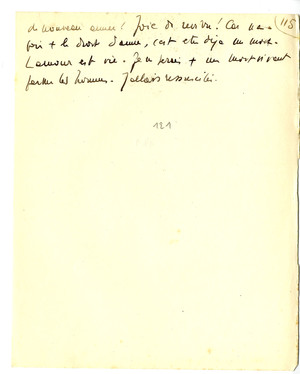 de nouveau aimer ! Joie de revivre ! Car ne
plus + le droit d'aimer, c'est être déjà un mort.
L'amour est vie. Je ne serais + un mort vivant
parmi les hommes. J'allais ressusciter.
115
121